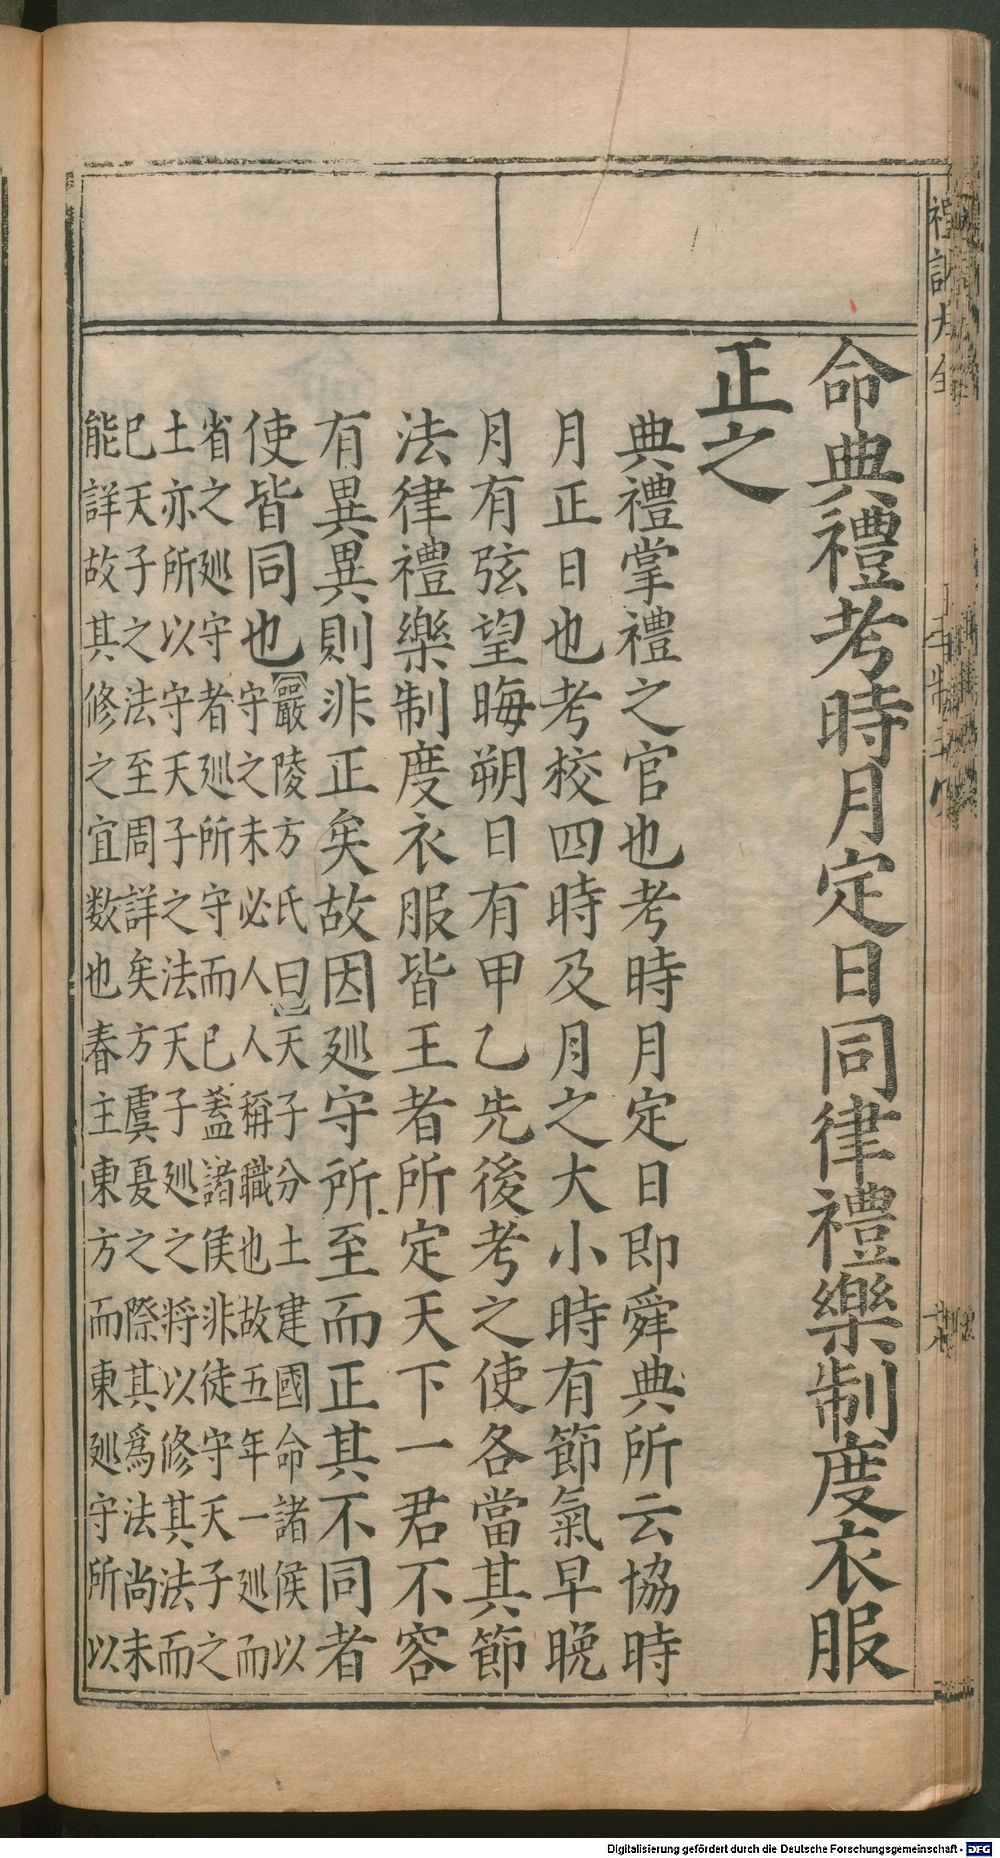 禮記大全
命典禮考時月定日同律禮樂制度衣服
正之
典禮掌禮之官也考時月定日即舜典所云協時
月正日也考校四時及月之大小時有節氣早晚
月有弦望晦朔日有甲乙先後考之使各當其節
法律禮樂制度衣服皆王者所定天下一君不容
有異異則非正矣故因廵守所至而正其不同者
使皆同也【嚴陵方氏曰】天子分土建國命諸侯以
守之未必人人稱職也故五年一廵而
省之廵守者廵所守而已蓋諸侯非徒守天子之
土亦所以守天子之法天子廵之將以修其法而
已天子之法至周詳矣方虞夏之際其爲法尚未
能詳故其修之宜数也春主東方而東廵守所以
Digitalisierung gefördert durch die Deutsche Forschungsgemeinschaft - DFG